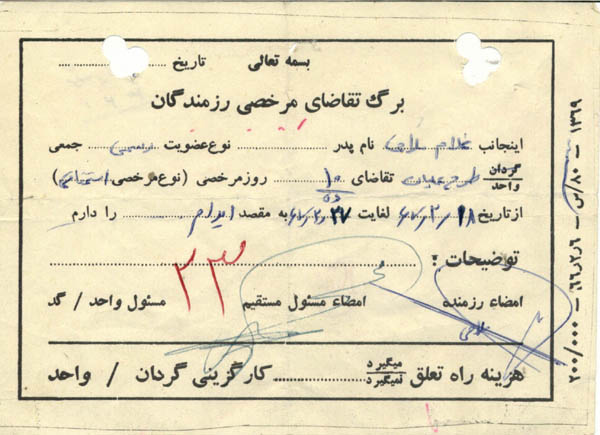 بسمه تعالی
تاریخ
برگ تقاضای مرخصی رزمندگان
اینجانب غلام ملاحی نام پدر نوع عضویت جمعی
گردان
واحد
طرح عملیات تقاضای ۱۰ روز مرخصی (نوع مرخصی استحقاقی)
از تاریخ ۶۷/۲/۱۸ لغایت ۶۷/۲/۲۷ به مقصد ایلام را دارم
توضیحات :
۲۳
امضاء رزمنده امضاء مسئول مستقیم مسئول واحد / گد
هزینه راه تعلق میگیرد
نمیگیرد
کارگزینی گردان / واحد
۲۰۰/۰۰۰ – ۶۶٫۲٫۶ – س/۸۰ – ۱۳۶۹